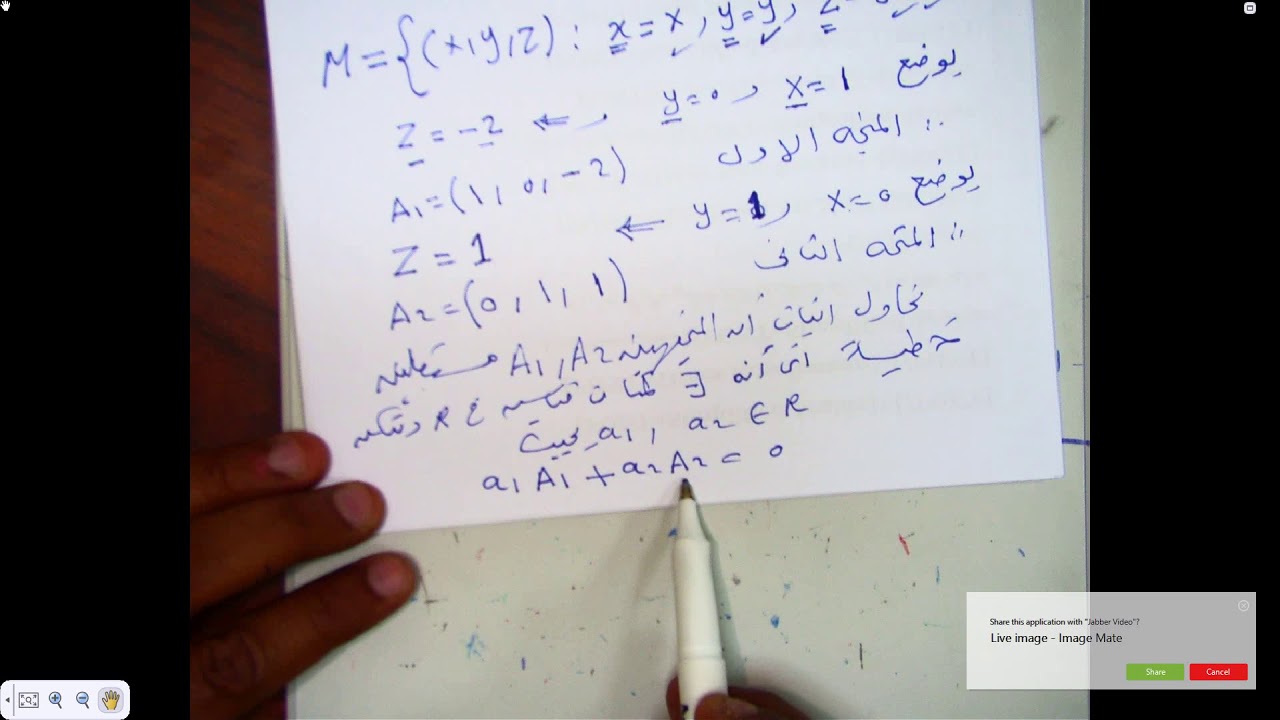 M = {(x,y,z) : x=x, y=y, z=
بوضع x=1 و y=0 و ⇐ z = -2
∴ المتجه الاول A1=(1, 0, -2)
بوضع x=0 و y=1 ⇐ z = 1
∴ المتجه الثانى A2=(0, 1, 1)
نحاول اثبات أن المتجهين A1, A2 مستقلين
خطيا أى أنه ∃ R
بحيث a1, a2 ∈ R
a1 A1 + a2 A2 = 0
Share this application with "Jabber Video"?
Live image - Image Mate
Share Cancel